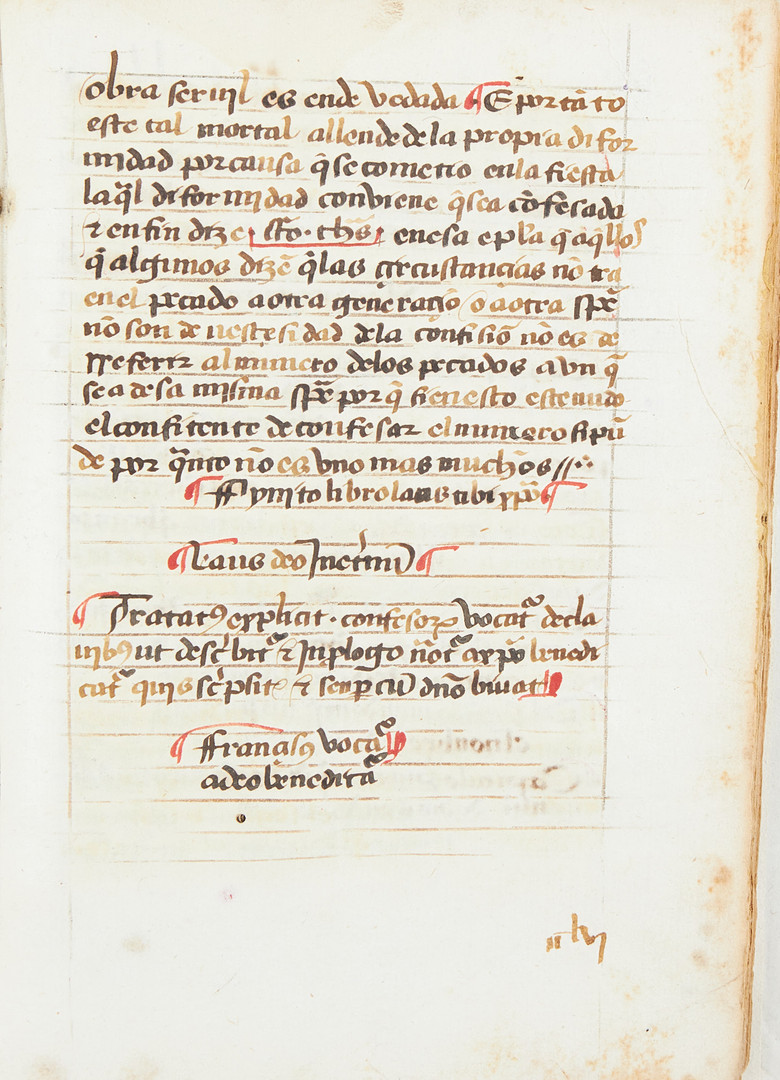 obra seruil es ende vedada ¶ E por tãto
este tal mortal allende de la propria difor
midad por causa q̃ se cometio en la fiesta
la q̃l diformidad conviene q̃ sea cõfesada
⁊ en fin dize sc̃o. thas̃ en esa epl̃a q̃ aq̃llos
q̃ algunos dizẽ q̃ las circustancias nõ tra
en el pecado a otra generaciõ o a otra spẽ
nõ son de nesçesidad de la confisiõ nõ es de
rreferir al numero de los pecados avn q̃
sea de sa misma spẽ por q̃ si en esto es tenudo
el confitente de confesar el numero si pũ
de por q̃nto nõ es vno mas muchos //
¶ ffynito libro laus tibi xp̃o ¶
¶ Laus deo In etm̃ ¶
¶ Tratatꝰ explicit . confesorꝝ vocatᷣ de cla
uibꝰ ut desc̃bitᷣ ⁊ In p̃logo nõtᷣ a xp̃o benedi
catᷣ qui sc̃psit ⁊ senper cũ dñõ bivat
¶ ffranciscꝰ vocatᷣ
a deo benedictᷣ